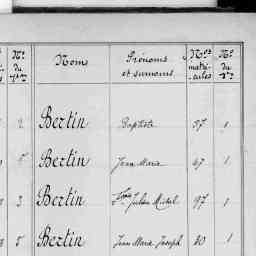 Nº du Noms Prénoms et surnoms Nos matri-cules Nº du
2 Bertin Baptiste 37 1
Bertin Jean Marie 67 1
3 Bertin Fçois Julien Michel 97 1
5 Bertin Jean Marie Joseph 20 1